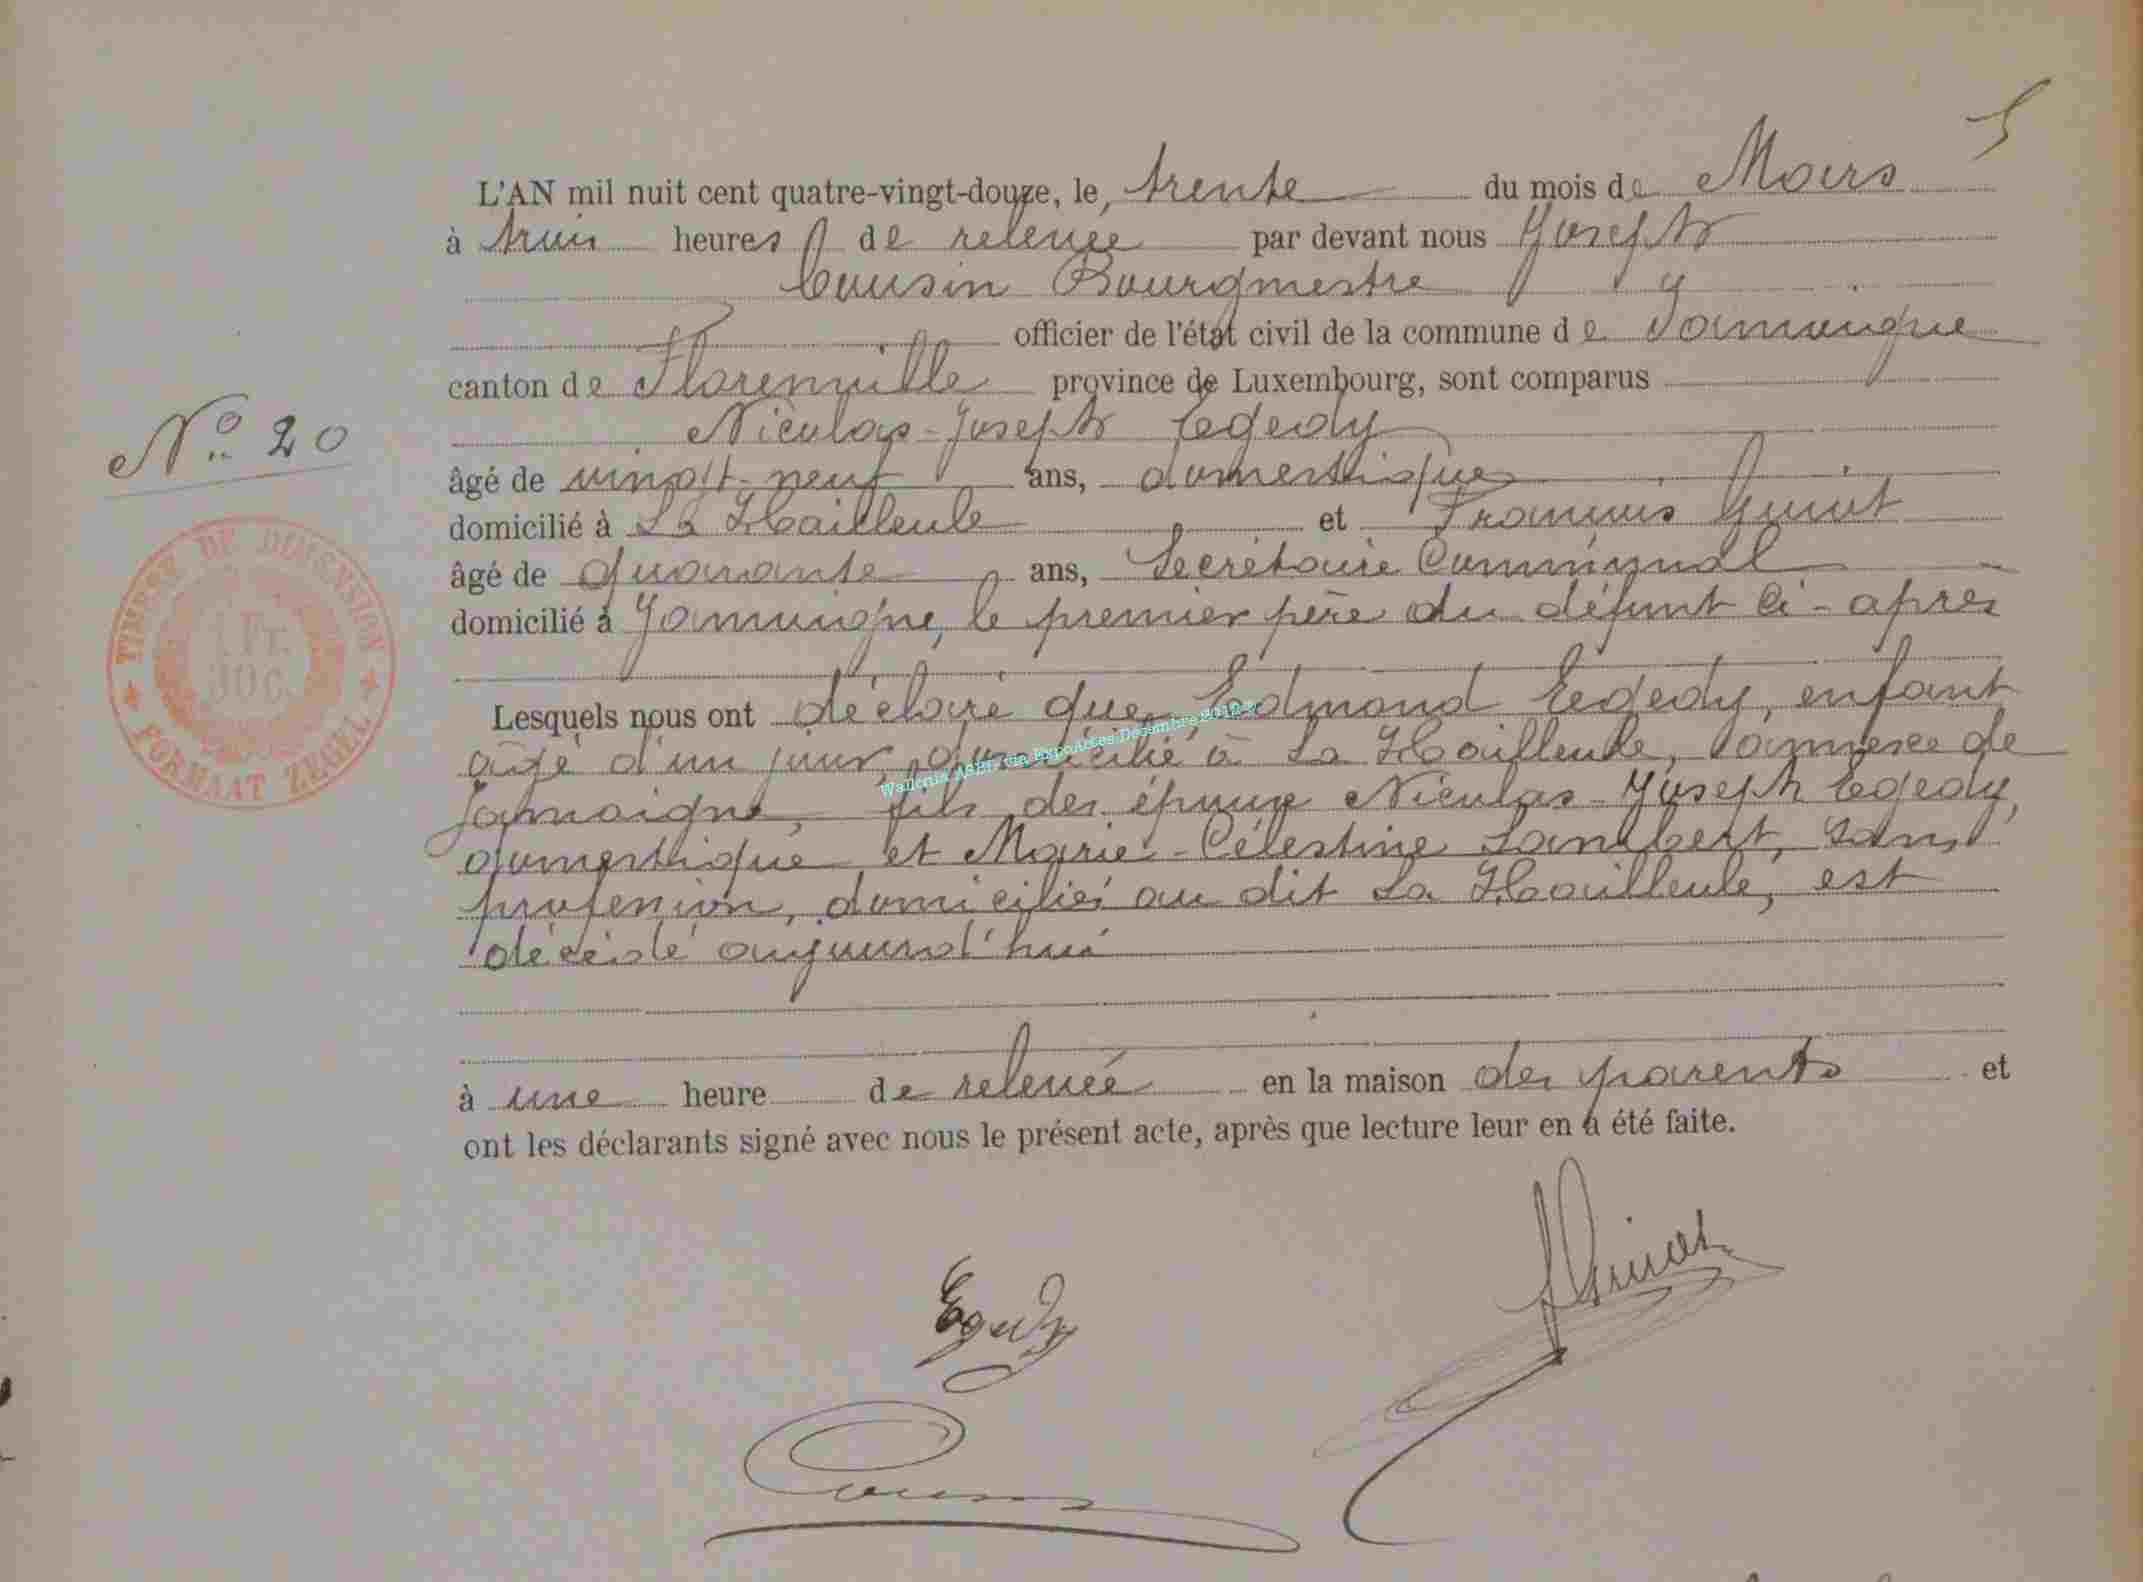 5
L'AN mil huit cent quatre-vingt-douze, le, trente du mois de Mars
à trois heures de relevée par devant nous Joseph
Cousin Bourgmestre
officier de l'état civil de la commune de Jamoigne
canton de Florenville province de Luxembourg, sont comparus
Nicolas-Joseph Egedy
N° 20
âgé de vingt-neuf ans, domestique
domicilié à La Hailleule et François Guiot
âgé de quarante ans, Secrétaire Communal
domicilié à Jamoigne, le premier père du défunt ci-après
TIMBRE DE DIMENSION
1 Fr.
30 c.
FORMAAT ZEGEL
Lesquels nous ont déclaré que Edmond Egedy, enfant
âgé d'un jour, domicilié à La Hailleule, annexe de
Jamoigne, fils des époux Nicolas-Joseph Egedy,
domestique et Marie-Célestine Lambert, sans
profession, domiciliés au dit La Hailleule, est
décédé aujourd'hui
Wallonia ASBL via ExpoActes Décembre 2012
à une heure de relevée en la maison des parents et
ont les déclarants signé avec nous le présent acte, après que lecture leur en a été faite.
Egedy
Guiot
Cousin